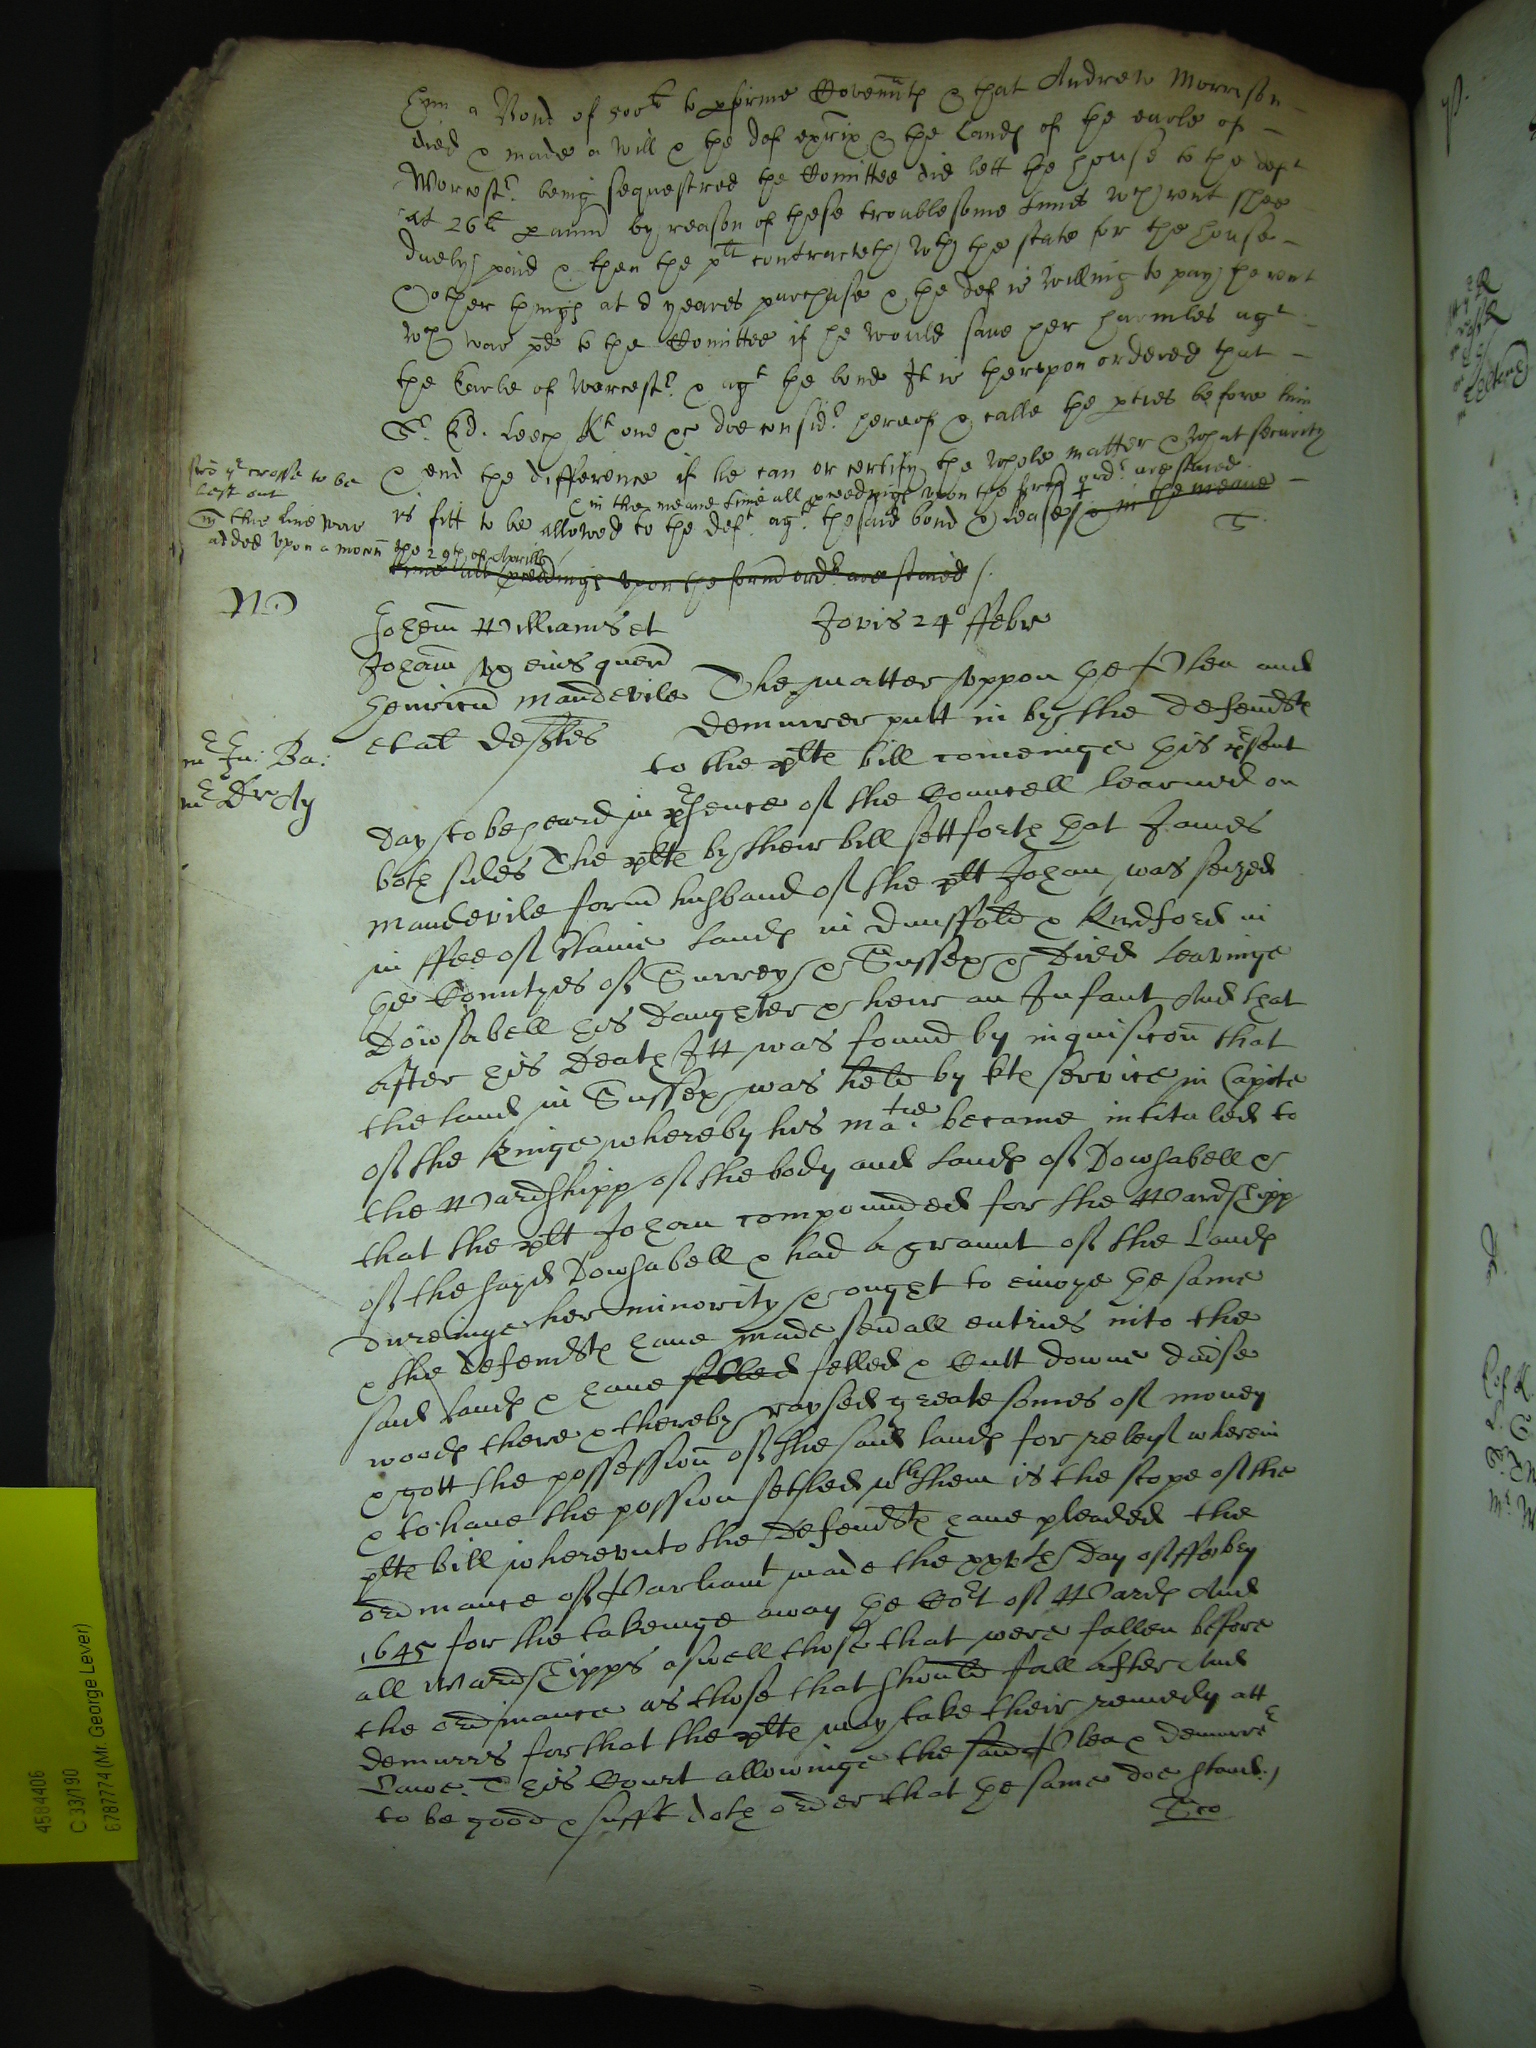 him a Bond of 500li to pforme Covennts & that Andrew Morrison
died & made a Will & the def exrix & the Lands of the earle of
Worcestr. being sequestred the Comittee did lett the house to the deft
at 26li p annu by reason of these troublesome times wch rent shee
duely paid & then the plt contracteth wth the state for the house
& other things at 8 yeares purchase & the def is willing to pay the rent
wch was pd to the Comittee if he would save her harmles agt
the Earle of Worcestr & agt the bond It is therupon ordered that
Sr. Ed. Leech Kt one &c doe considr hereof & calle the pties before him
& end the difference if he can or certify the whole matter & what security
& in the meane time all pceedings upon the form ordr are staied
is fitt to be allowed to the deft. agt. the said bond & lease & in the meane
time all pceedings upon the form ordr are staied /.
T
the crosse to be
last out
in this line was
added upon a mocon the 29th of Aprill
Johem Williams et
Johann ux eius quer
Henricu Mandevile
et al defstes
Jovis 24o ffebr
mr Ju: Ba:
mr Dr Ay
The matter uppon the Plea and
demurrer putt in by the defendts
to the plts bill comeinge this psent
day to be heard in psence of the Councell learned on
both sides The plts by their bill sett forth that James
Mandevile form husband of the plt Johan was seized
in ffee of Lands in Dunsfold & Kirdford in
the Countyes of Surrey & Sussex & Died Leavinge
Dowsabell his Daughter & heir an Infant And that
after his Death Itt was found by inquisicon that
the land in Sussex was held by kts service in Capite
of the Kinge whereby his Matie. became intituled to
the Wardshipp of the body and Lands of Dowsabell &
that the plt Johan compounded for the Wardshipp
of the sayd Dowsabell & had a graunt of the Lands
dureinge her minority & ought to enioye the same
& the defendts have made sevall entries into the
said lands & have felled felled & Cutt downe divse
woods there & thereby raysed greate somes of money
& gott the possession of the said lands for releif wherein
& to have the possion setled wth them is the scope of the
plts bill wherevnto the Defendts have pleaded the
ordinance of Parliamt made the xxvth Day of ffebry
1645 for the takeinge away the Cort of Wards And
all Wardshipps aswell those that were fallen before
the ordinance as those that should fall after And
demurrs for that the plts may take their remedy att
Lawe. This Court allowinge the said Plea & demurrr
to be good & sufft doth order that the same doe stand./
4584406
C 33/190
E787774 (Mr. George Lever)